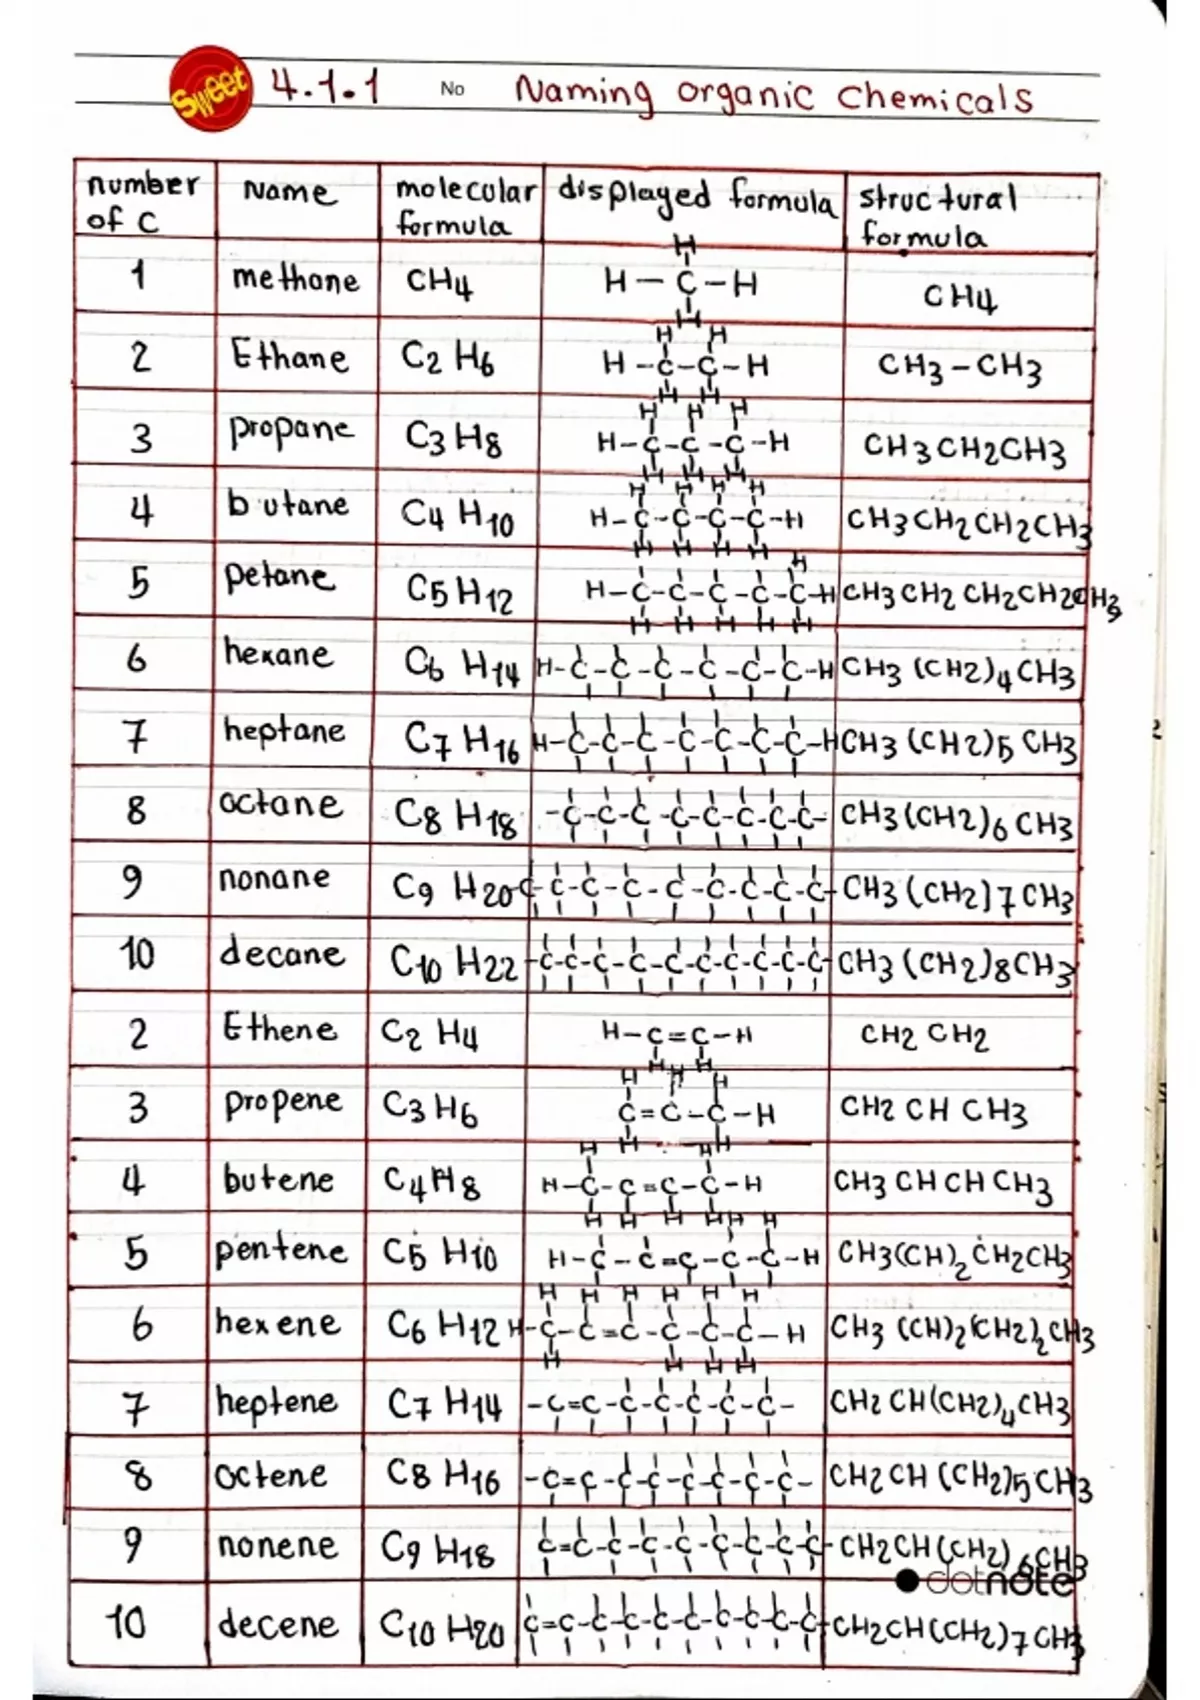 Sweet 4.1.1 No Naming organic chemicals
number of C Name molecular formula displayed formula structural formula
1 methane CH4 CH4
H
H - C - H
H
2 Ethane C2 H6 CH3 - CH3
H H
H - C - C - H
H H
3 propane C3 H8 CH3CH2CH3
H H H
H - C - C - C - H
H H H
4 butane C4 H10 CH3CH2CH2CH3
H H H H
H - C - C - C - C - H
H H H H
5 petane C5H12 CH3CH2CH2CH2CH3
H
H - C - C - C - C - C - H
H H H H H
6 hexane C6 H14 H - C - C - C - C - C - C - H CH3 (CH2)4CH3
7 heptane C7 H16 H - C - C - C - C - C - C - C - H CH3 (CH2)5 CH3
8 octane C8 H18 - C - C - C - C - C - C - C - C - CH3(CH2)6 CH3
9 nonane C9 H20 C - C - C - C - C - C - C - C - C - CH3 (CH2)7CH3
10 decane C10 H22 - C - C - C - C - C - C - C - C - C - C - CH3 (CH2)8CH3
2 Ethene C2 H4 CH2 CH2
H - C = C - H
H H
3 propene C3 H6 CH2 CH CH3
H H H
C = C - C - H
H H
4 butene C4H8 CH3 CH CH CH3
H H
H - C - C = C - C - H
H H H H
5 pentene C5 H10 CH3(CH)2CH2CH3
H H
H - C - C = C - C - C - H
6 hexene C6 H12 CH3 (CH)2(CH2)2CH3
H H H H H H
H - C - C = C - C - C - C - H
H H H H
7 heptene C7 H14 - C = C - C - C - C - C - C - CH2 CH(CH2)4CH3
8 octene C8 H16 - C = C - C - C - C - C - C - C - CH2CH (CH2)5CH3
9 nonene C9 H18 C = C - C - C - C - C - C - C - C - CH2CH(CH2)6CH3
dotnote
10 decene C10 H20 C = C - C - C - C - C - C - C - C - C - CH2CH(CH2)7CH3